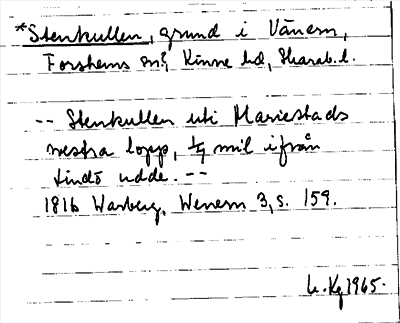 *Stenkullen, grund i Vänern,
Forshems sn, Kinne hd, Skarab. l.
-- Stenkullen uti Mariestads
vestra lopp, 1/4 mil ifrån
Lindö udde. --
1816 Warberg, Wenern 3, s. 159.
1965.